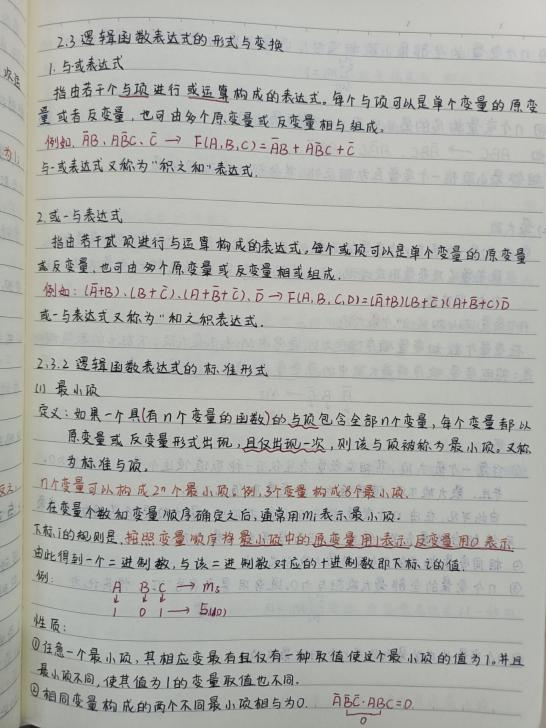 2.3 逻辑函数表达式的形式与变换
1. 与-或表达式
指由若干个与项进行或运算构成的表达式。每个与项可以是单个变量的原变
量或者反变量，也可由多个原变量或反变量相与组成。
例如，A̅B、AB̅C、C̅ → F(A,B,C)=A̅B+AB̅C+C̅
与-或表达式又称为"积之和"表达式.
2. 或-与表达式
指由若干或项进行与运算构成的表达式，每个或项可以是单个变量的原变量
或反变量，也可由多个原变量或反变量相或组成.
例如：(A̅+B)、(B+C̅)、(A+B̅+C̅)、D̅ → F(A,B,C,D)=(A̅+B)(B+C̅)(A+B̅+C)D̅
或-与表达式又称为"和之积表达式.
2.3.2 逻辑函数表达式的标准形式
(1) 最小项
定义：如果一个具(有n个变量的函数)的与项包含全部n个变量，每个变量都以
原变量或反变量形式出现，且仅出现一次，则该与项被称为最小项。又称
为标准与项。
n个变量可以构成2ⁿ个最小项。例，3个变量构成8个最小项.
在变量个数和变量顺序确定之后，通常用mi表示最小项.
下标i的规则是，按照变量顺序将最小项中的原变量用1表示，反变量用0表示，
由此得到一个二进制数，与该二进制数对应的十进制数即下标i的值.
例：
A B̅ C → m₅
1 0 1 → 5(10)
性质：
①任意一个最小项，其相应变量有且仅有一种取值使这个最小项的值为1。并且
最小项不同，使其值为1的变量取值也不同.
②相同变量构成的两个不同最小项相与为0. A̅B̅C̅·ABC=0
0